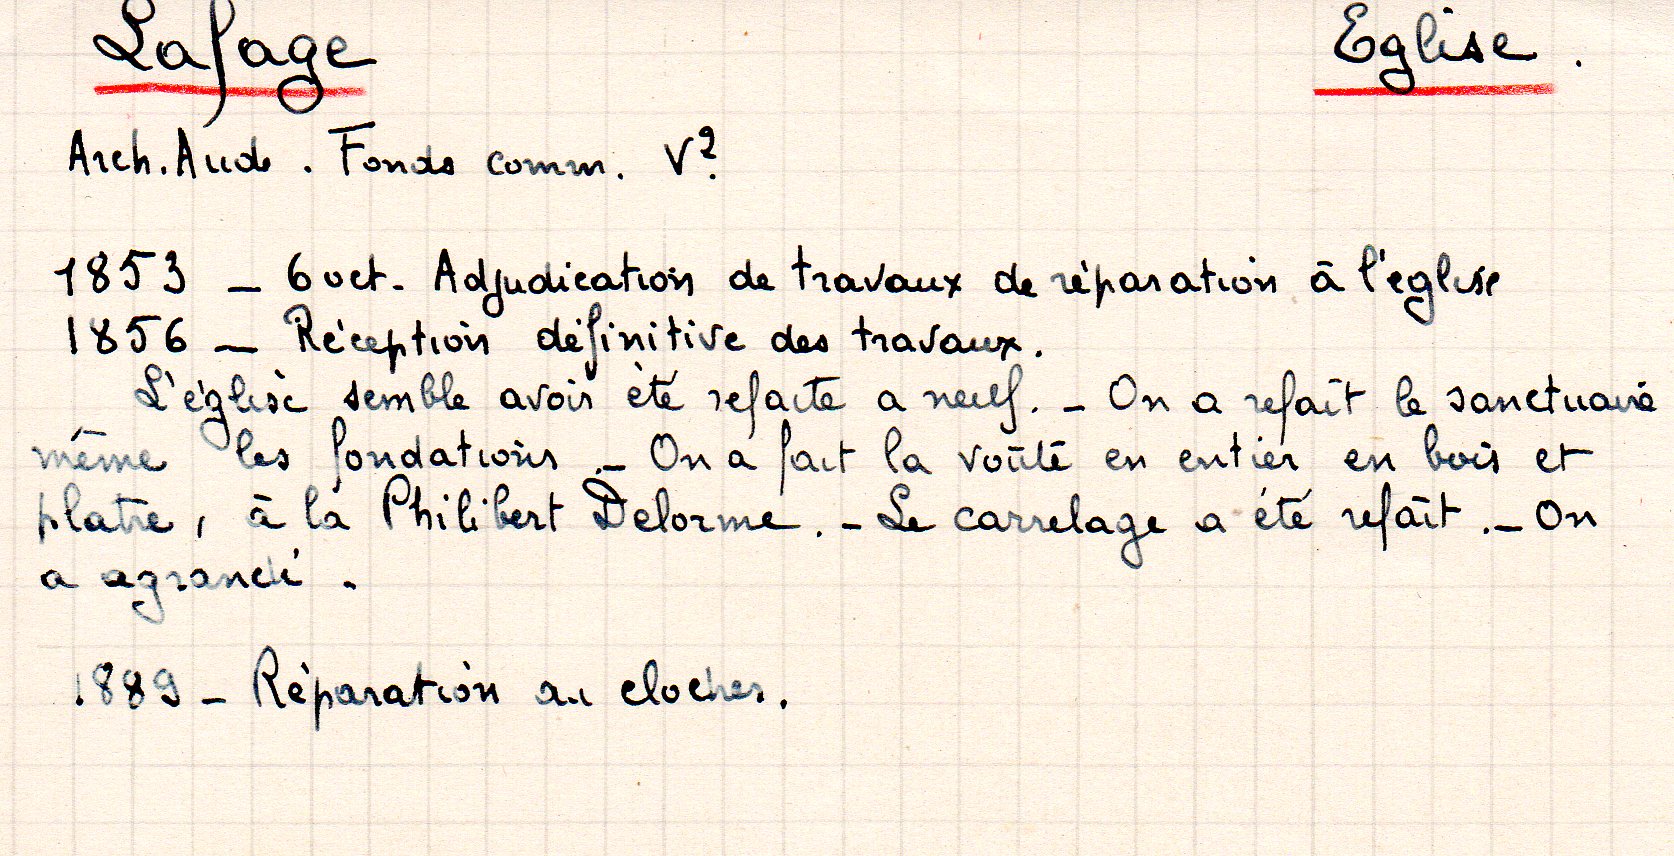 Lafage Eglise.
Arch. Aude. Fonds comm. V².
1853 _ 6 oct. Adjudication de travaux de réparation à l'église
1856 _ Réception définitive des travaux.
L'église semble avoir été refaite a neuf. _ On a refait le sanctuaire
même les fondations _ On a fait la voûte en entier en bois et
platre, à la Philibert Delorme. _ Le carrelage a été refait. _ On
a agrandi.
1889 _ Réparation au clocher.